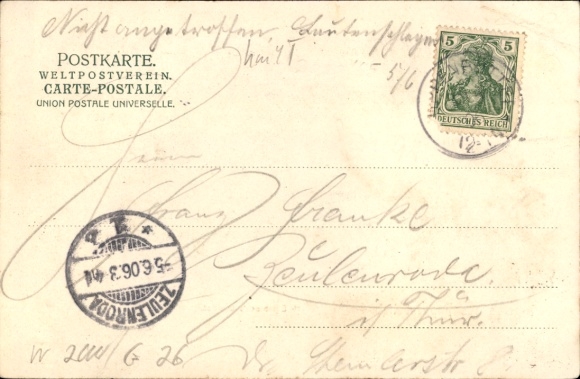 Nicht angetroffen, Lautenschläger
5/6
POSTKARTE.
WELTPOSTVEREIN.
CARTE-POSTALE.
UNION POSTALE UNIVERSELLE.
5 5
DEUTSCHES REICH
12-
Herrn
Franz Franke
Zeulenroda
i/ Thür.
5.6.06.3-4N
ZEULENRODA